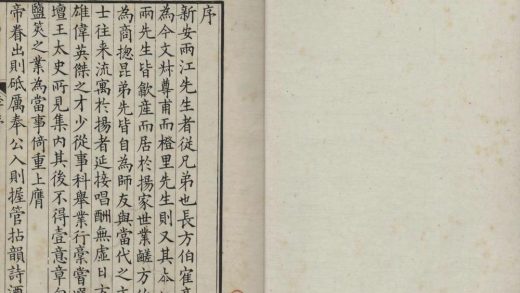 序
新安兩江先生者從兄弟也長方伯寉
為今文尊甫而橙里先生則又其
兩先生皆歙産而居於揚家世業鹺方
為商揔昆弟先皆自為師友與當代之
士往来流寓於揚者延接唱酬無虛日方
雄偉英傑之才少從事科舉業行嘗
壇王太史所見集内其後不得壹意章
鹽筴之業為當事倚重上膺
帝眷出則砥厲奉公入則握管拈韻詩酒